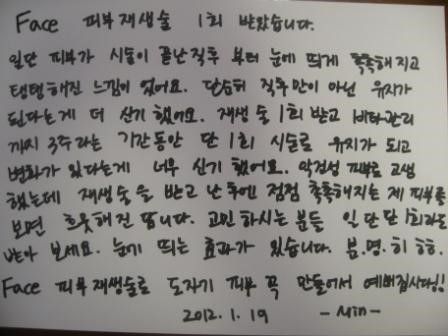 Face 피부재생술 1회 받았습니다.
일단 피부가 시술이 끝난직후 부터 눈에 띄게 촉촉해지고
탱탱해진 느낌이 었어요. 단순히 직후만이 아닌 유지가
된다는게 더 신기했어요. 재생술1회 받고 비타관리
까지 3주라는 기간동안 단 1회 시술로 유지가 되고
변화가 있다는게 너무 신기했어요. 악건성 피부로 고생
했는데 재생술을 받고 난 후엔 점점 촉촉해지는 제 피부를
보면 흐뭇해진 답니다. 고민 하시는 분들 일단 단 1회라도
받아 보세요. 눈에 띄는 효과가 있습니다. 분.명.히 ㅎㅎ.
Face 피부재생술로 도자기 피부 꼭 만들어서 예뻐집시다!!
2012.1.19 -Min-